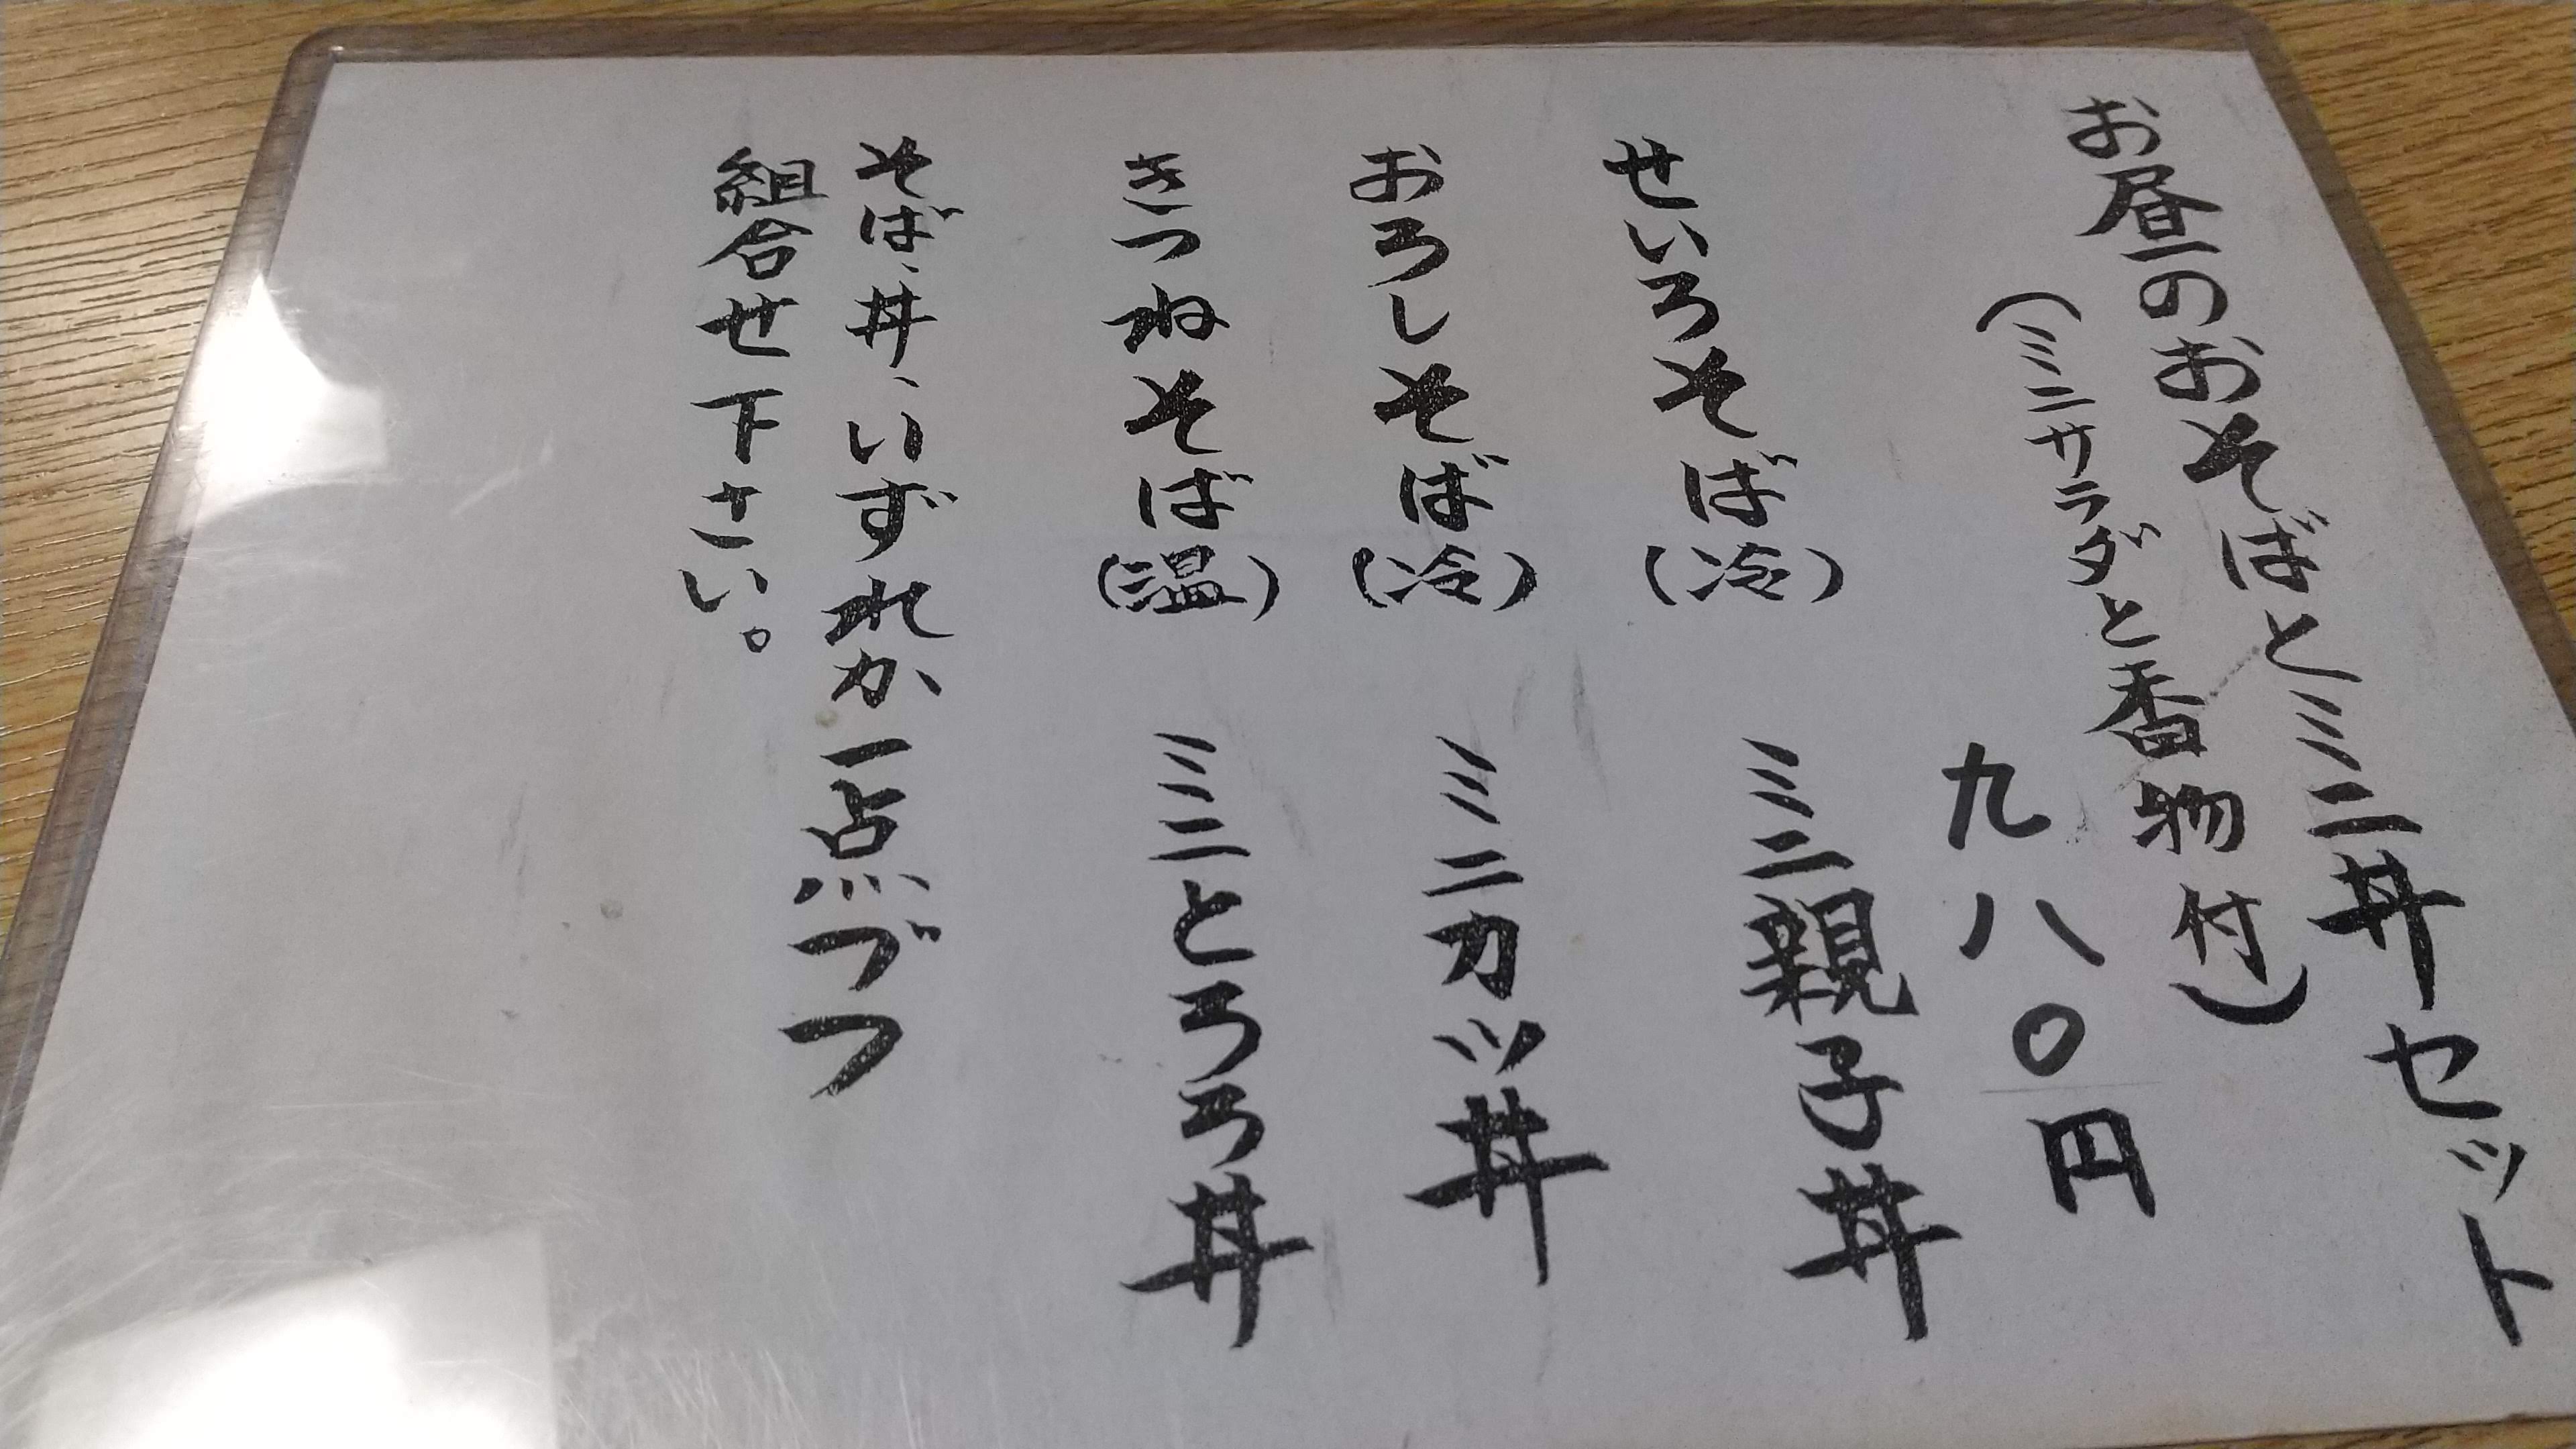 お昼のおそばとミニ丼セット
（ミニサラダと香物付）
九八〇円
せいろそば（冷）　ミニ親子丼
おろしそば（冷）　ミニカツ丼
きつねそば（温）　ミニとろろ丼
そば、丼、いずれか一点づつ
組合せ下さい。